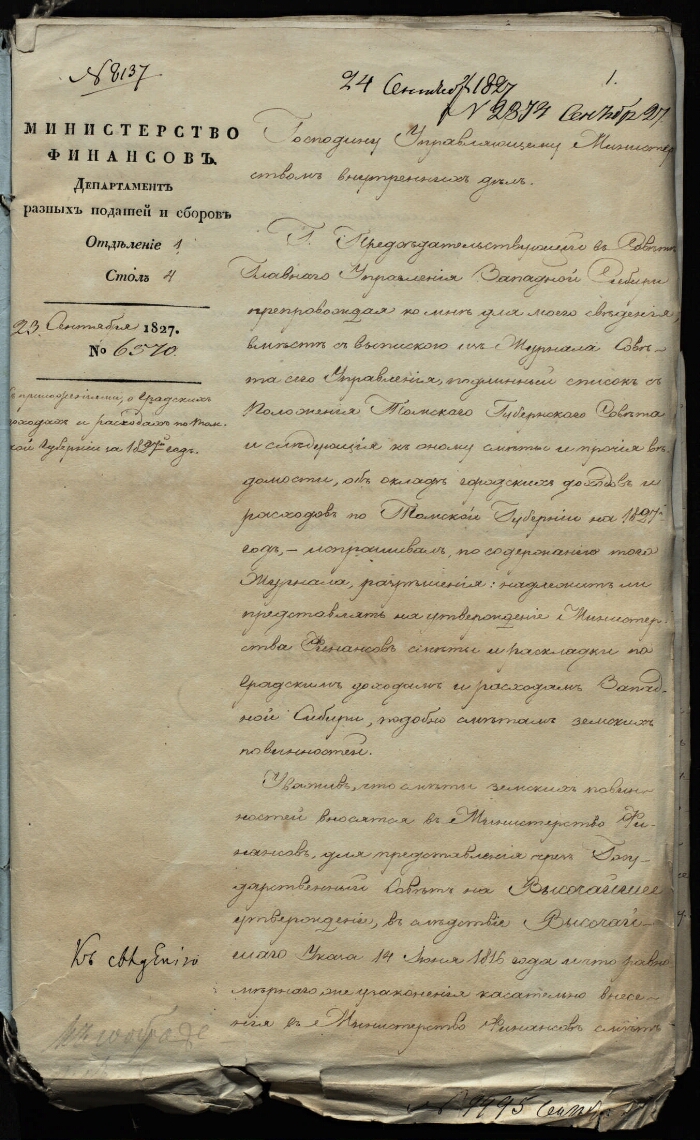 N 8137
24 Сентября 1827
1.
N 2874 Сентябр 27.
МИНИСТЕРСТВО
ФИНАНСОВЪ.
ДЕПАРТАМЕНТЪ
разныхъ податей и сборовъ
Отдѣленіе 1
Столъ 4
23. Сентября 1827.
№ 6570.
о Градскихъ
доходахъ и расходахъ по Том-
ской Губерніи за 1827й годъ.
Господину Управляющему Министер
ствомъ внутреннихъ дѣлъ.
Г. Предсѣдательствующій въ Совѣтѣ
Главнаго Управленія Западной Сибири
препровождая ко мнѣ для моего свѣденія,
вмѣстѣ съ выпискою изъ Журнала Совѣ-
та сего Управленія, подлинный список съ
Положенія Томскаго Губернскаго Совѣта
и слѣдующія къ оному смѣты и прочія вѣ-
домости, объ окладѣ городскихъ доходовъ и
расходовъ по Томской Губерніи на 1827й
годъ, – испрашивалъ, по содержанію того
Журнала, разрѣшенія: надлежитъ ли
представлять на утвержденіе Министер-
ства Финансовъ смѣты и раскладки по
Градскимъ доходамъ и расходамъ Запад-
ной Сибири, подобно смѣтамъ земскихъ
повинностей.
Уваживъ, что смѣты земскихъ повин-
ностей вносятся въ Министерство Фи-
нансовъ, для представленія чрезъ Госу-
дарственный Совѣтъ на Высочайшее
утвержденіе, въ слѣдствіе Высочай-
шаго Указа 14 Іюня 1816 года и что равно
мѣрнаго же узаконенія касательно внесе-
нія въ Министерство Финансовъ смѣтъ
Къ свѣденію
N 9995